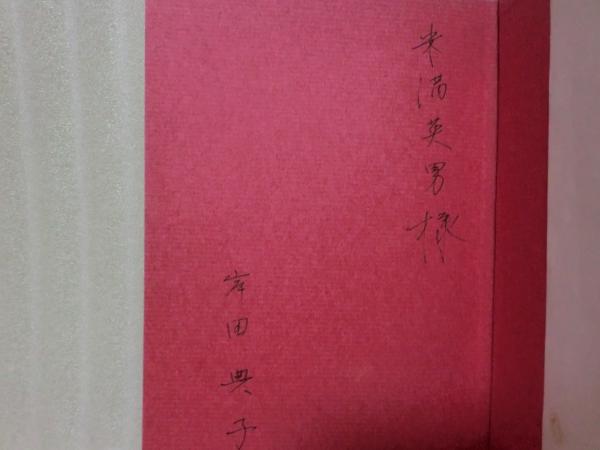 米満英男様
岸田典子